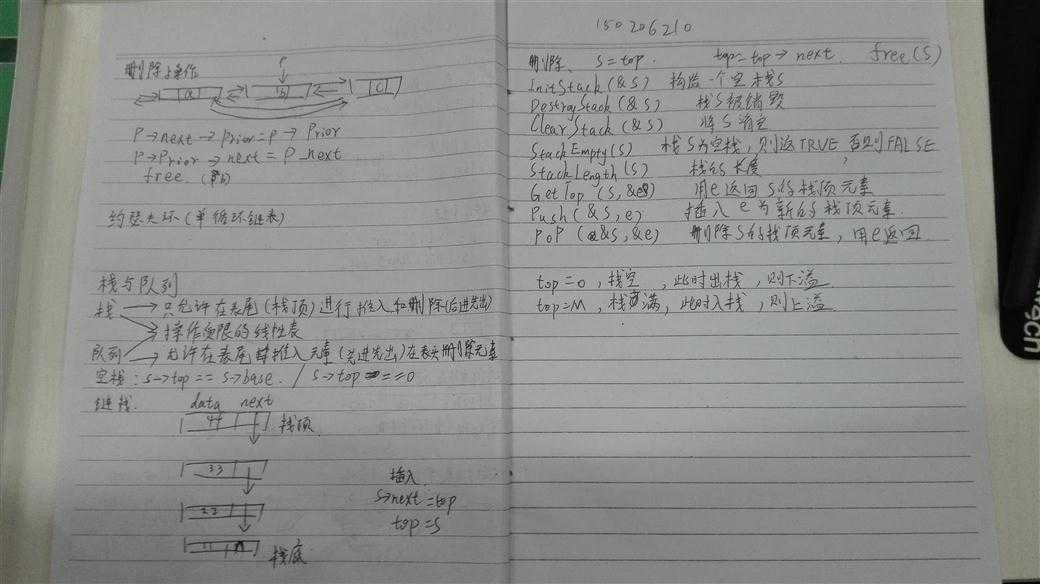 删除操作
P
a b c
P→next→prior=p→prior
P→prior→next=P_next
free.
约瑟夫环(单循环链表)
栈与队列
栈→只允许在表尾(栈顶)进行插入和删除(后进先出)
操作受限的线性表
队列→允许在表尾插入元素(先进先出)在表头删除元素
空栈:s→top==s→base. / s→top==0
链栈. data next
44 栈顶
33
22
11 ∧ 栈底
插入
s→next=top
top=s
150206210
删除、 s=top. top=top→next. free(s)
InitStack(&S) 构造一个空栈S
DestroyStack(&S) 栈S被销毁
ClearStack(&S) 将S清空
StackEmpty(S) 栈S为空栈,则返TRUE,否则FALSE
StackLength(S) 栈的长度
GetTop(S,&e) 用e返回S的栈顶元素
Push(&S,e) 插入e为新的栈顶元素.
PoP(&S,&e) 删除S的栈顶元素,用e返回
top=0,栈空,此时出栈,则下溢
top=M,栈满,此时入栈,则上溢
tech